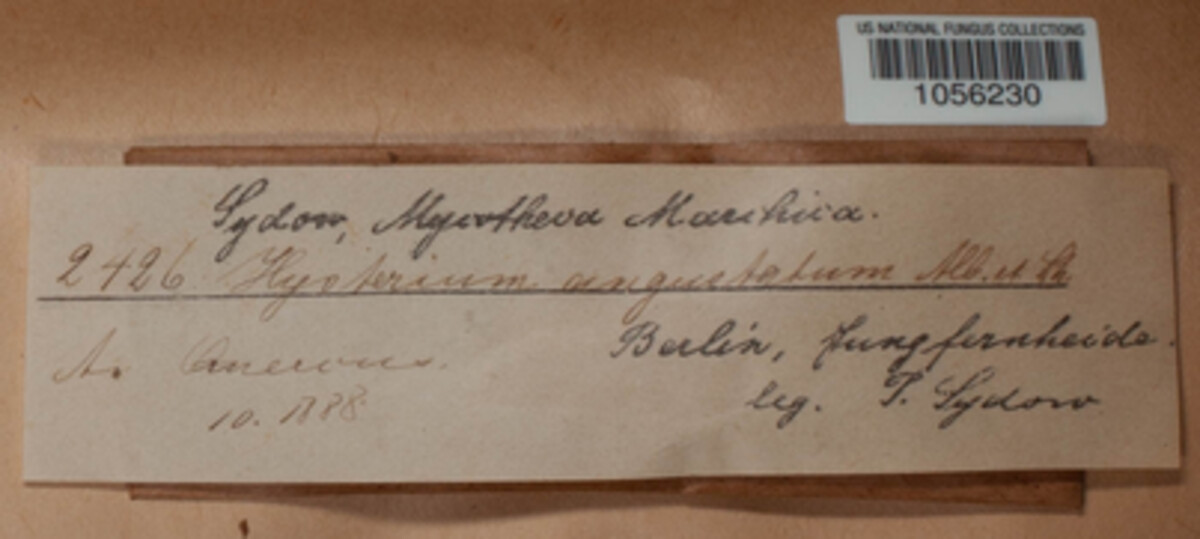 US NATIONAL FUNGUS COLLECTIONS
1056230
Sydow, Mycotheca Marchica.
2426 Hysterium angustatum Alb. et Sch
10. 1888
Berlin, Jungfernheide.
leg. P. Sydow